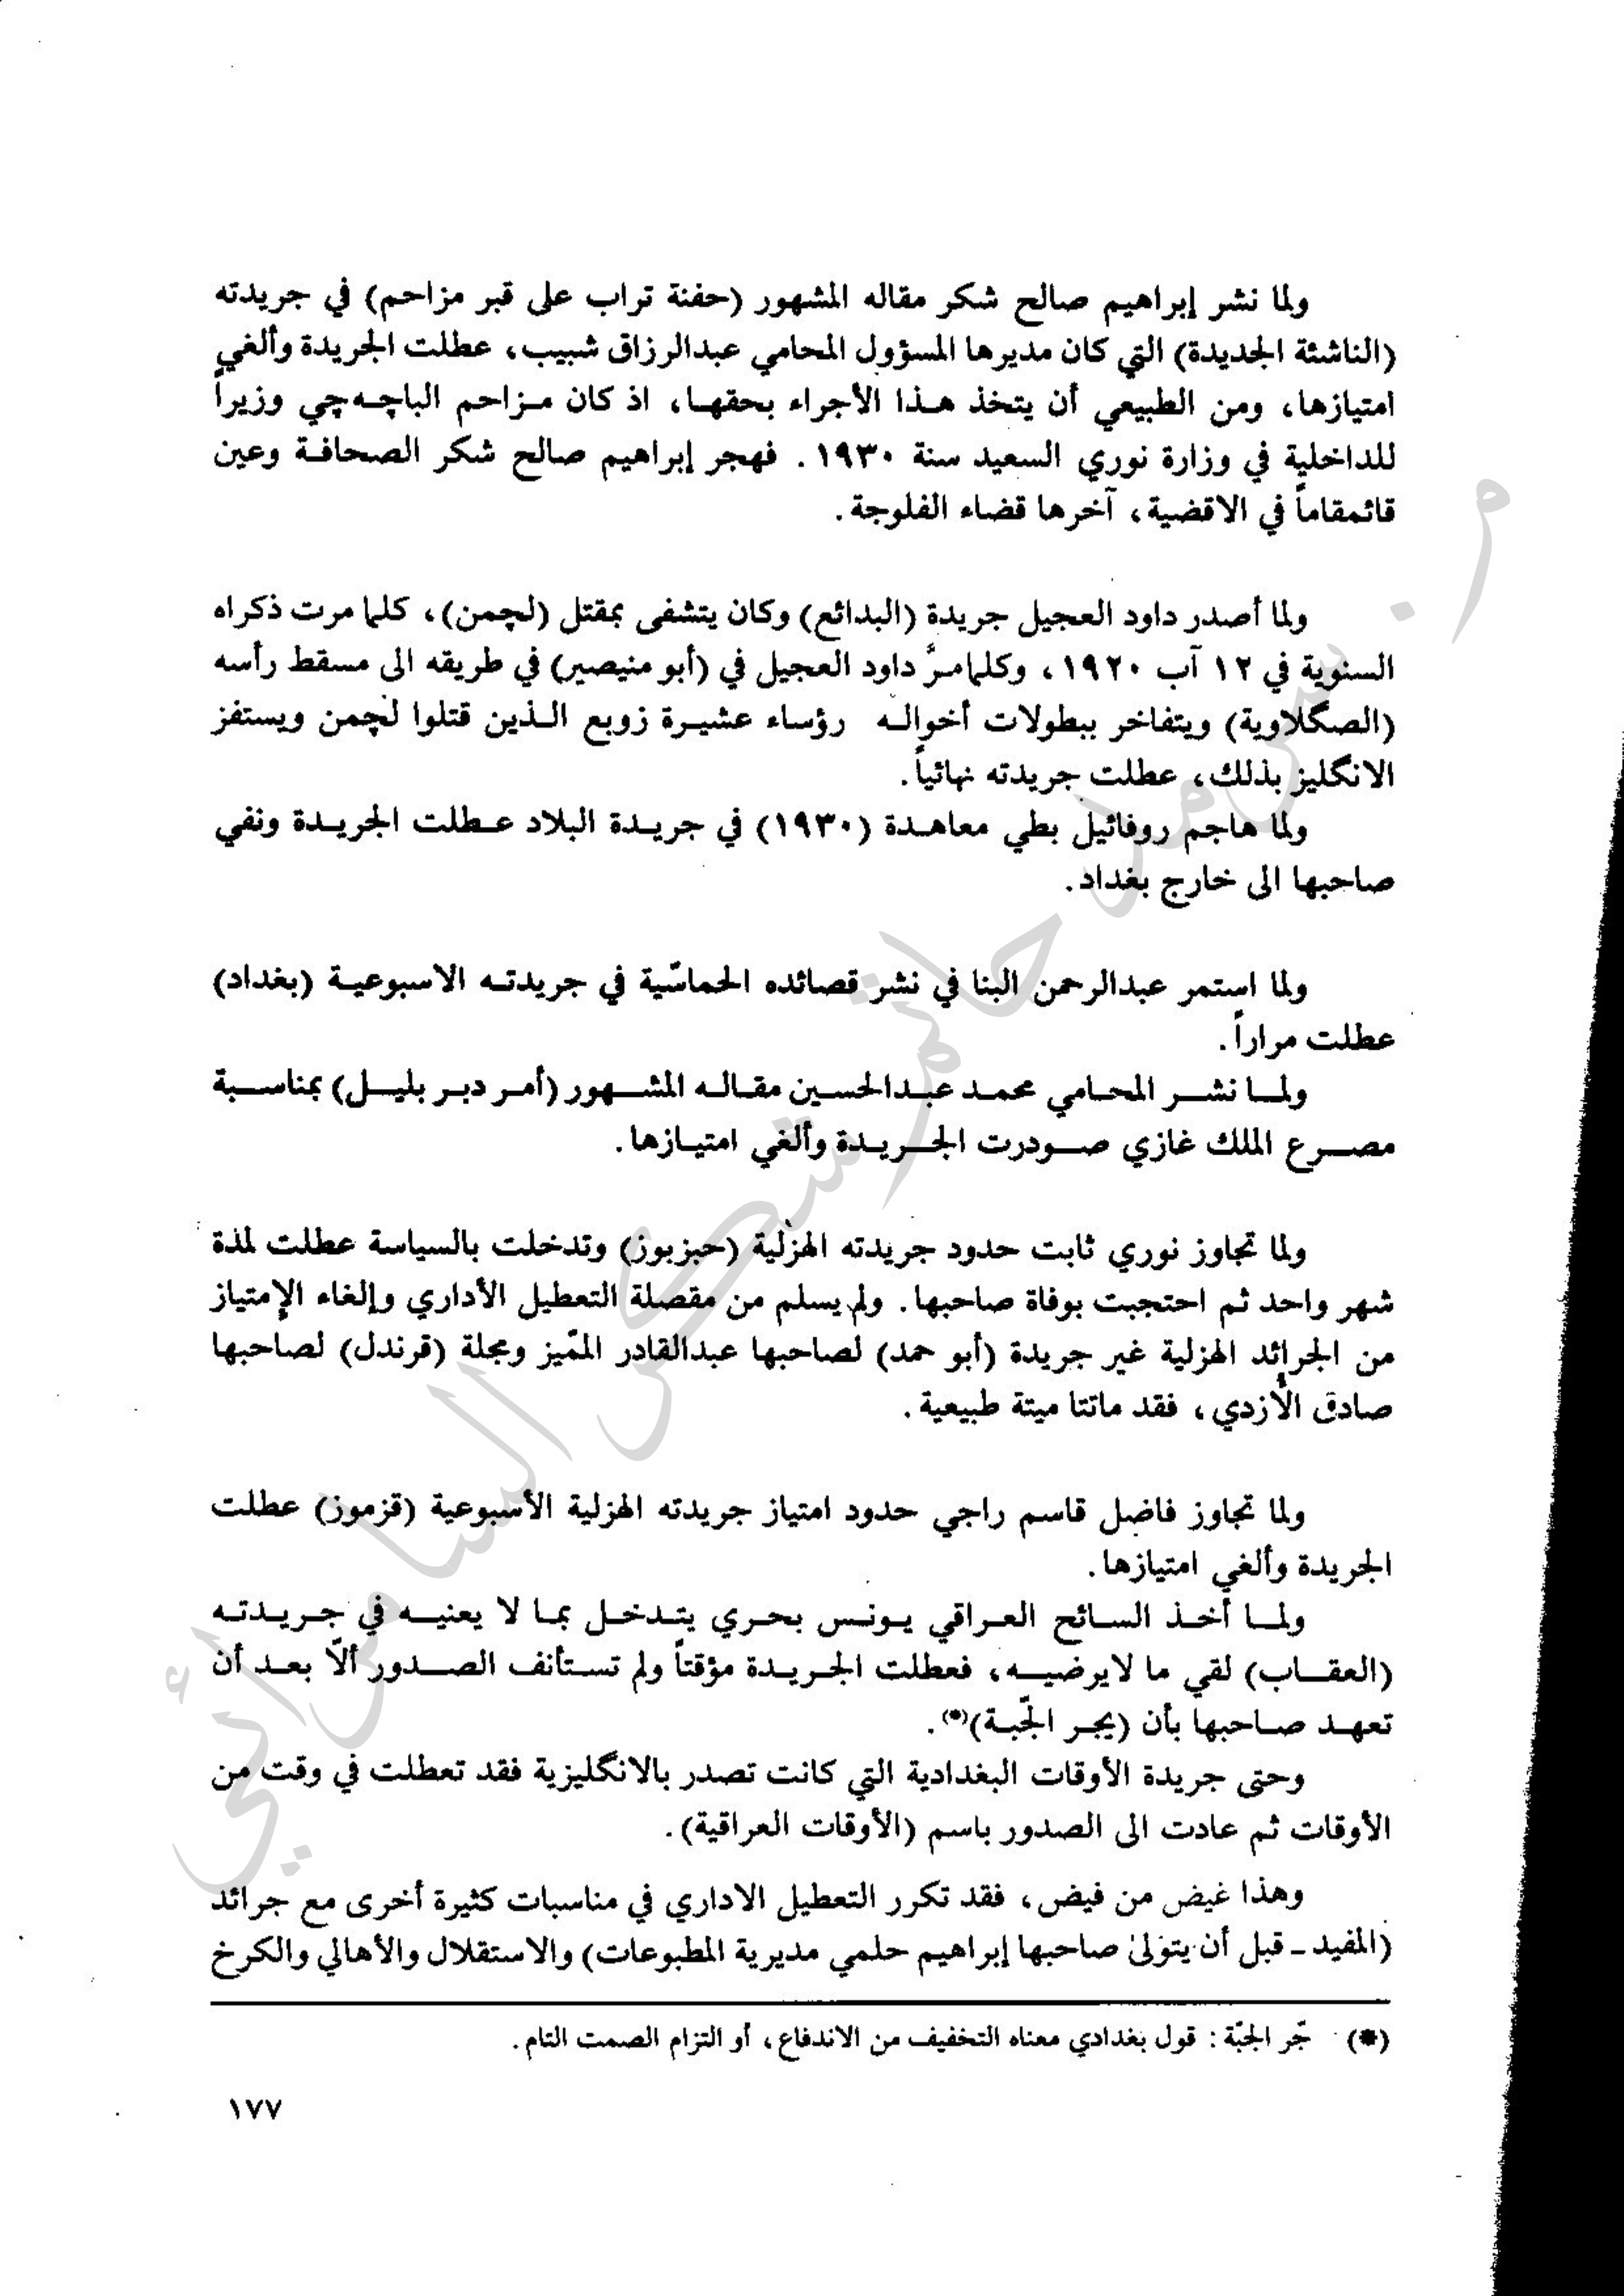 ولما نشر إبراهيم صالح شكر مقاله المشهور (حفنة تراب على قبر مزاحم) في جريدته
(الناشئة الجديدة) التي كان مديرها المسؤول المحامي عبدالرزاق شبيب، عطلت الجريدة وألغي
امتيازها، ومن الطبيعي أن يتخذ هذا الأجراء بحقها، اذ كان مزاحم الباچه‌چي وزيراً
للداخلية في وزارة نوري السعيد سنة ١٩٣٠. فهجر إبراهيم صالح شكر الصحافة وعين
قائمقاماً في الاقضية، آخرها قضاء الفلوجة.
ولما أصدر داود العجيل جريدة (البدائع) وكان يتشفى بمقتل (لچمن)، كلما مرت ذكراه
السنوية في ١٢ آب ١٩٢٠، وكلما مرّ داود العجيل في (أبو منيصير) في طريقه الى مسقط رأسه
(الصگلاوية) ويتفاخر ببطولات أخواله رؤساء عشيرة زوبع الذين قتلوا لچمن ويستفز
الانگليز بذلك، عطلت جريدته نهائياً.
ولما هاجم روفائيل بطي معاهدة (١٩٣٠) في جريدة البلاد عطلت الجريدة ونفي
صاحبها الى خارج بغداد.
ولما استمر عبدالرحمن البنا في نشر قصائده الحماسّية في جريدته الاسبوعية (بغداد)
عطلت مراراً.
ولما نشر المحامي محمد عبدالحسين مقاله المشهور (أمر دبر بليل) بمناسبة
مصرع الملك غازي صودرت الجريدة وألغي امتيازها.
ولما تجاوز نوري ثابت حدود جريدته الهزلية (حبزبوز) وتدخلت بالسياسة عطلت لمدة
شهر واحد ثم احتجبت بوفاة صاحبها. ولم يسلم من مقصلة التعطيل الأداري وإلغاء الإمتياز
من الجرائد الهزلية غير جريدة (أبو حمد) لصاحبها عبدالقادر المّيز ومجلة (قرندل) لصاحبها
صادق الأزدي، فقد ماتتا ميتة طبيعية.
ولما تجاوز فاضل قاسم راجي حدود امتياز جريدته الهزلية الأسبوعية (قزموز) عطلت
الجريدة وألغي امتيازها.
ولما أخذ السائح العراقي يونس بحري يتدخل بما لا يعنيه في جريدته
(العقاب) لقي ما لايرضيه، فعطلت الجريدة مؤقتاً ولم تستأنف الصدور ألاّ بعد أن
تعهد صاحبها بأن (يجر الجّبة)(*).
وحتى جريدة الأوقات البغدادية التي كانت تصدر بالانگليزية فقد تعطلت في وقت من
الأوقات ثم عادت الى الصدور باسم (الأوقات العراقية).
وهذا غيض من فيض، فقد تكرر التعطيل الاداري في مناسبات كثيرة أخرى مع جرائد
(المفيد ـ قبل أن يتولى صاحبها إبراهيم حلمي مديرية المطبوعات) والاستقلال والأهالي والكرخ
(*) جّر الجبّة: قول بغدادي معناه التخفيف من الاندفاع، أو التزام الصمت التام.
١٧٧